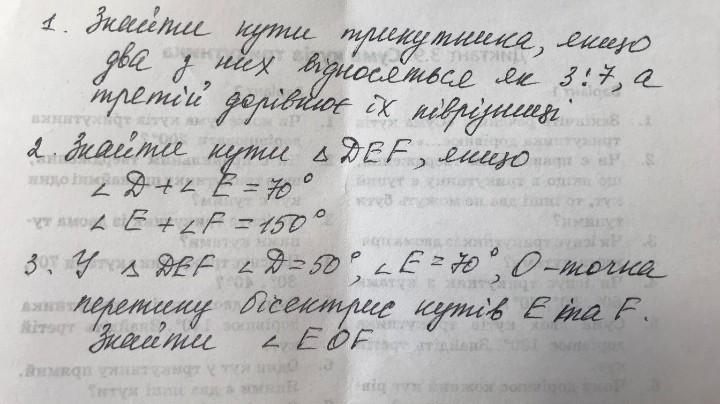 1. Знайти кути трикутника, якщо
два з них відносяться як 3:7, а
третій дорівнює їх піврізниці
2. Знайти кути △DEF, якщо
∠D+∠E=70°
∠E+∠F=150°
3. У △DEF ∠D=50°, ∠E=70°, O-точка
перетину бісектрис кутів E та F.
Знайти ∠EOF